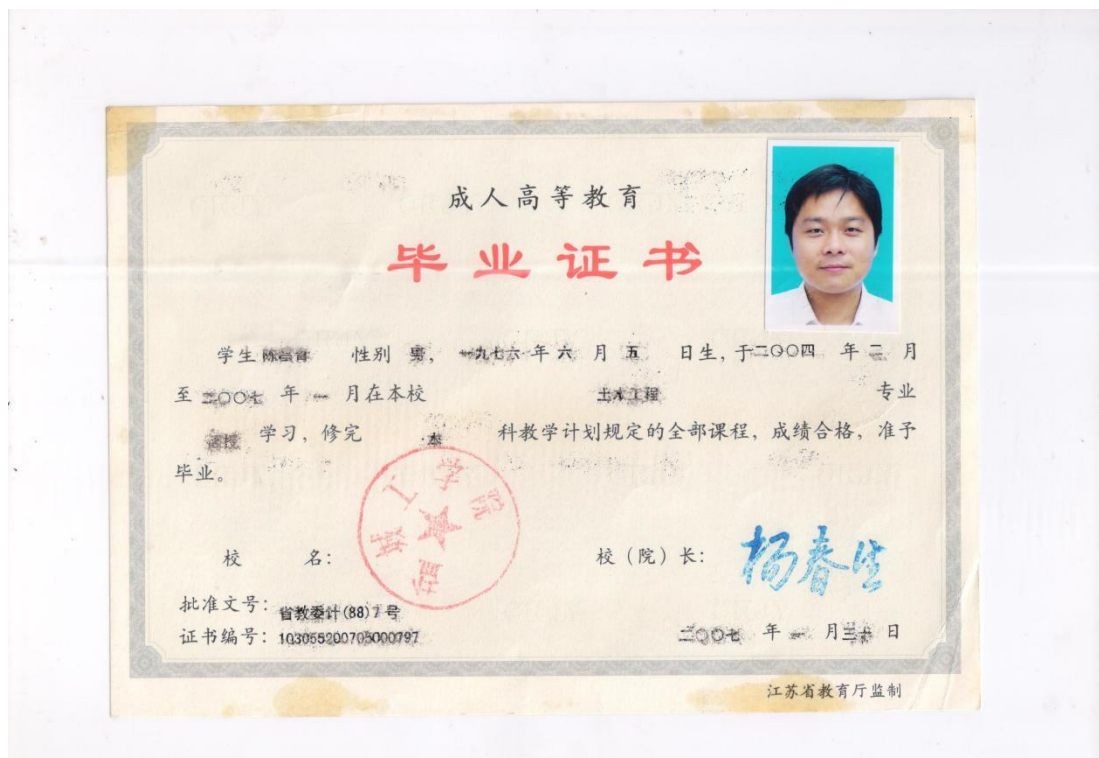 成人高等教育
毕业证书
学生 性别 男, 一九七六年六月五日生,于二〇〇四年二月
至二〇〇七年一月在本校 土木工程 专业
函授 学习,修完 本 科教学计划规定的全部课程,成绩合格,准予
毕业。
盐城工学院
校 名: 校(院)长: 杨春生
批准文号: 省教委计(88)7号
证书编号: 103055200705000797
二〇〇七年一月三十日
江苏省教育厅监制